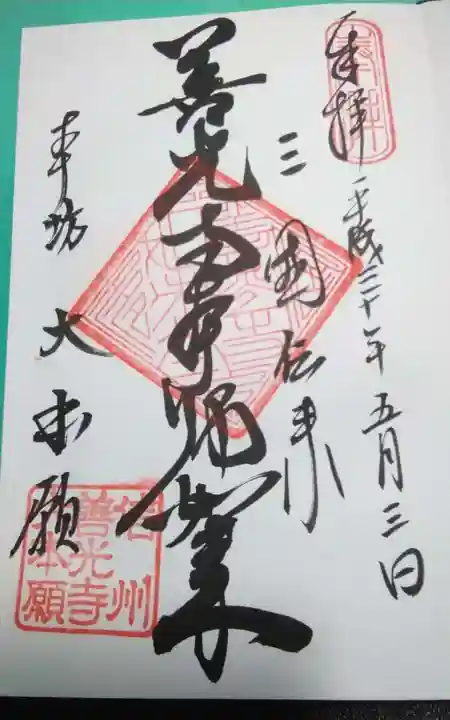 奉拝 平成三十年五月三日
三國伝来
善光寺本師如来
本坊 大本願
信州
善光寺
大本願